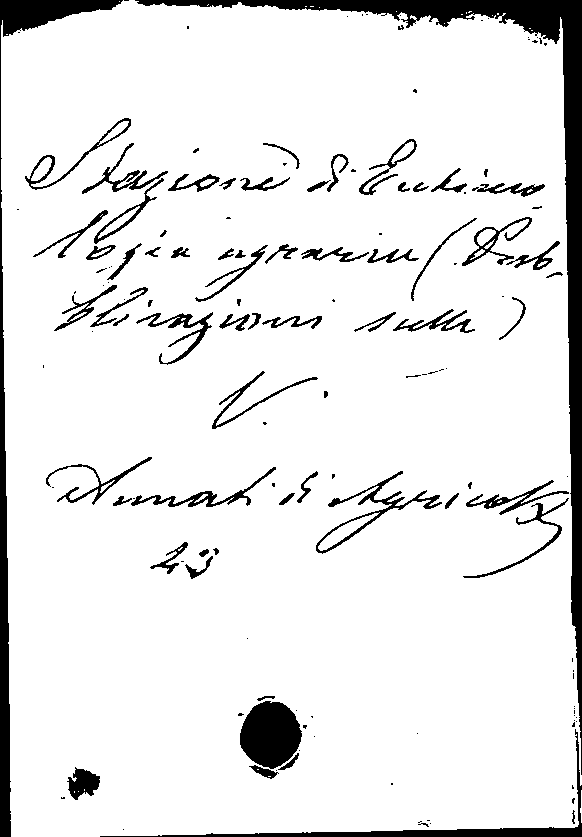 Stazione di Entimo
logia agraria (Pub-
blicazioni sulla)
V.
Annali di Agricolt
23